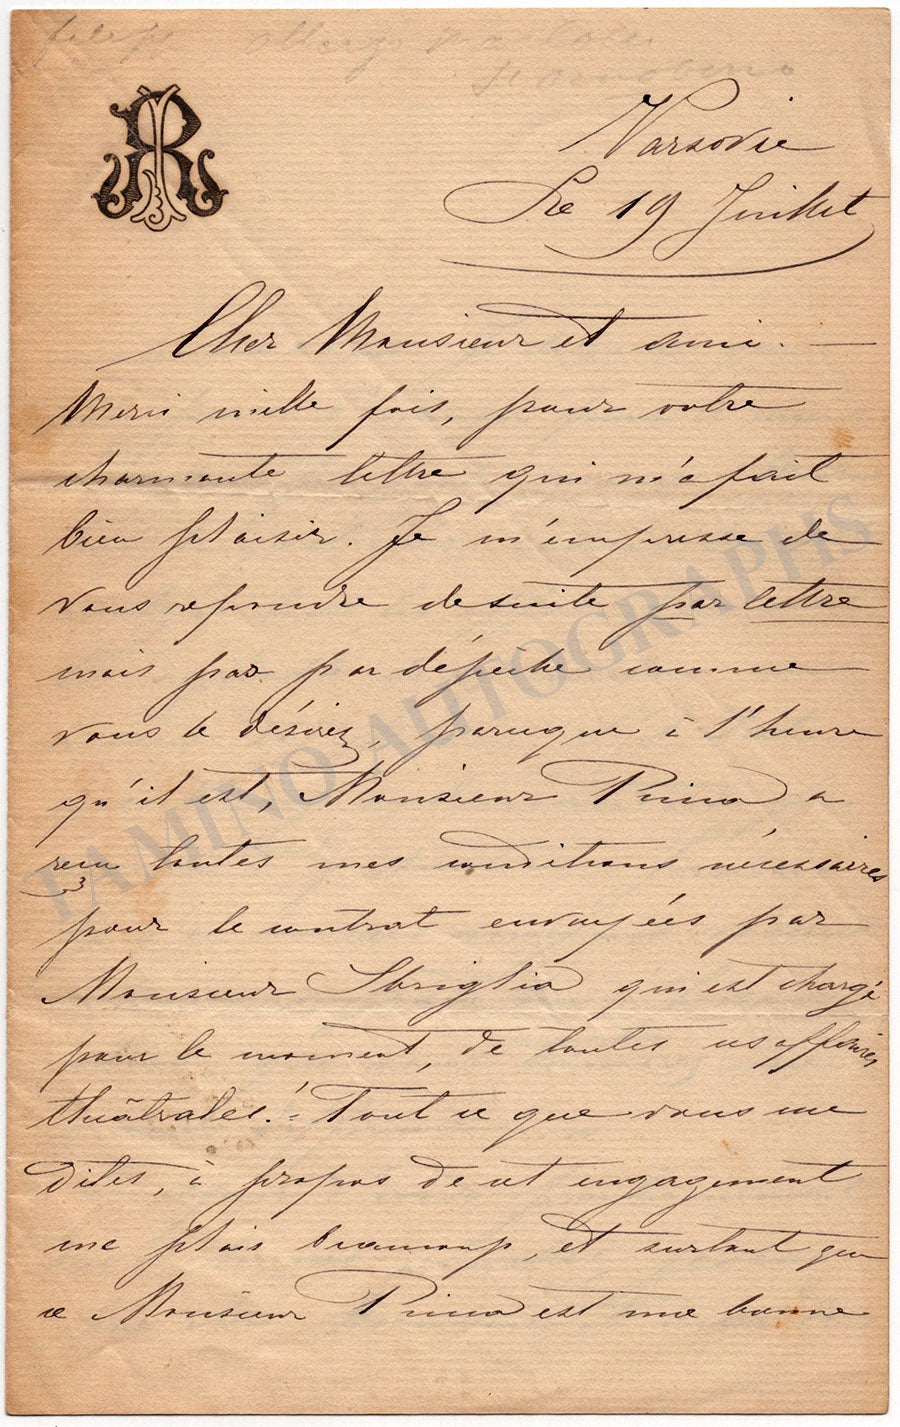 Varsovie
Le 19 Juillet
Cher Monsieur et ami. —
Merci mille fois, pour votre
charmante lettre qui m'a fait
bien plaisir. Je m'empresse de
vous repondre desuite par lettre
mais pas par dépêche comme
vous le désirez, parceque à l'heure
qu'il est, Monsieur Pinna a
reçu toutes mes conditions nécessaires
pour le contrat envoyées par
Monsieur Sbriglia qui est chargé
pour le moment, de toutes ces affaires
théâtrales! — Tout ce que vous me
dites, à propos de cet engagement
me plais beaucoup, et surtout que
ce Monsieur Pinna est une bonne
TAMINO AUTOGRAPHS